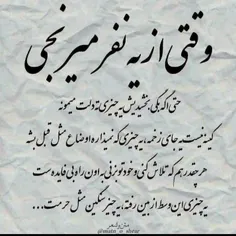 وقتی از یه نفر میرنجی
حتی اگه بگی بخشیدیش یه چیزی ته دلت میمونه
کینه نیست یه جای زخمه، یه چیزی که نمیذاره اوضاع مثل قبل بشه
هر چقدر هم که تلاش کنی و خودتو بزنی به اون راه بی فایده ست
یه چیزی این وسط از بین رفته، یه چیز سنگین مثل حرمت...